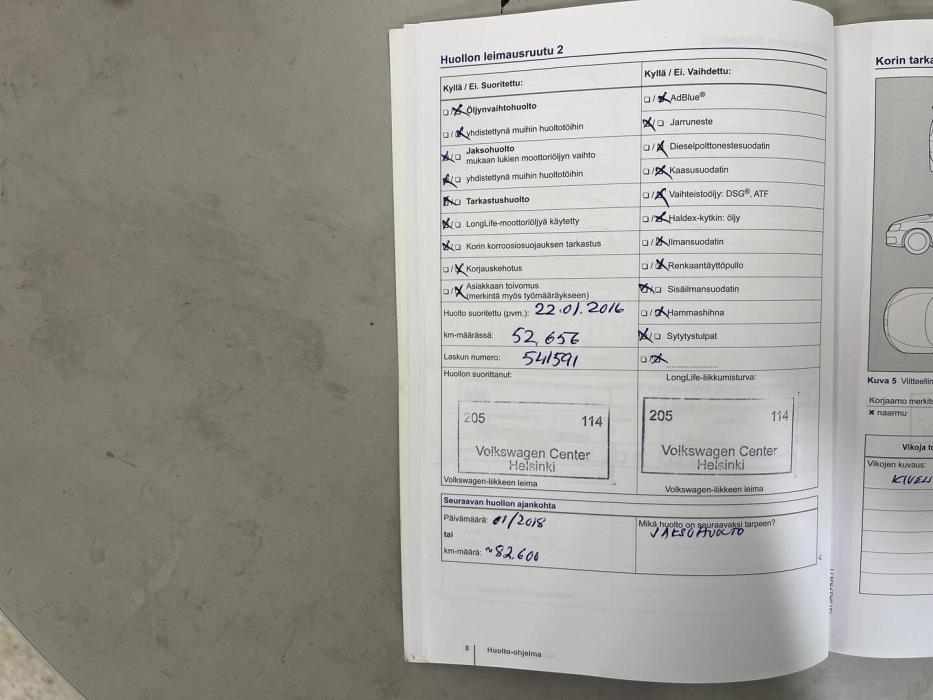 Huollon leimausruutu 2
Kyllä / Ei. Suoritettu:
Öljynvaihtohuolto
yhdistettynä muihin huoltotöihin
Jaksohuolto
mukaan lukien moottoriöljyn vaihto
yhdistettynä muihin huoltotöihin
Tarkastushuolto
LongLife-moottoriöljyä käytetty
Korin korroosiosuojauksen tarkastus
Korjauskehotus
Asiakkaan toivomus
(merkintä myös työmääräykseen)
Huolto suoritettu (pvm.): 22.01.2016
km-määrässä: 52 656
Laskun numero: 541591
Huollon suorittanut:
205 114
Volkswagen Center
Helsinki
Volkswagen-liikkeen leima
Kyllä / Ei. Vaihdettu:
AdBlue®
Jarruneste
Dieselpolttonestesuodatin
Kaasusuodatin
Vaihteistoöljy: DSG®, ATF
Haldex-kytkin: öljy
Ilmansuodatin
Renkaantäyttöpullo
Sisäilmansuodatin
Hammashihna
Sytytystulpat
LongLife-liikkumisturva:
205 114
Volkswagen Center
Helsinki
Volkswagen-liikkeen leima
Seuraavan huollon ajankohta
Päivämäärä: 01/2018
tai
km-määrä: ~82 600
Mikä huolto on seuraavaksi tarpeen?
JAKSOHUOLTO
8 Huolto-ohjelma
Korin tarka
Kuva 5 Viitteellin
Korjaamo merkits
naarmu
Vikoja to
Vikojen kuvaus:
KIVEN